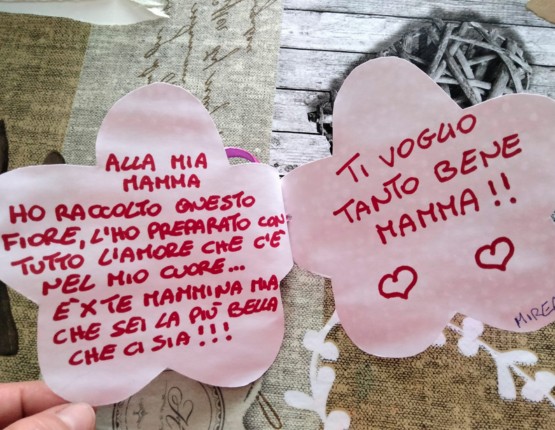 ALLA MIA
MAMMA
HO RACCOLTO QUESTO
FIORE, L'HO PREPARATO CON
TUTTO L'AMORE CHE C'È
NEL MIO CUORE...
È X TE MAMMINA MIA
CHE SEI LA PIÙ BELLA
CHE CI SIA!!!
TI VOGLIO
TANTO BENE
MAMMA!!